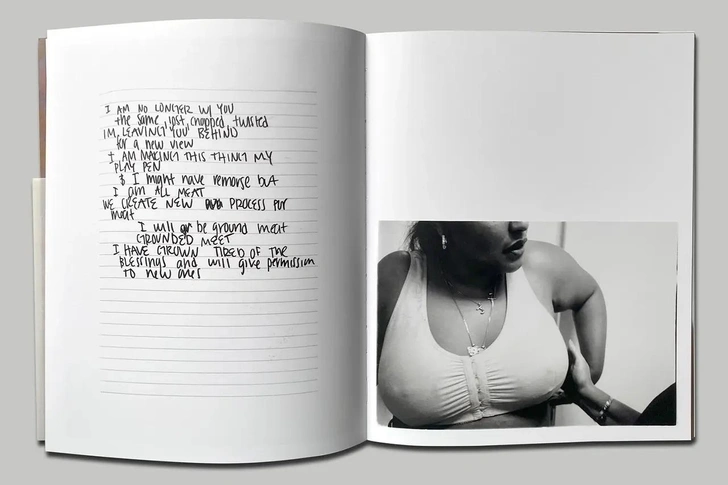 I AM NO LONGER W/ YOU
the same, lost, chopped, twisted
IM, LEAVING YOU BEHIND
for a new view
I AM MAKING THIS THING MY
PLAY PEN
& I might have remorse but
I am ALL MEAT
WE CREATE NEW PROCESS for
meat
I will be ground meat
GROUNDED MEET
I HAVE GROWN TIRED OF THE
BLESSINGS and will give permission
TO new ones